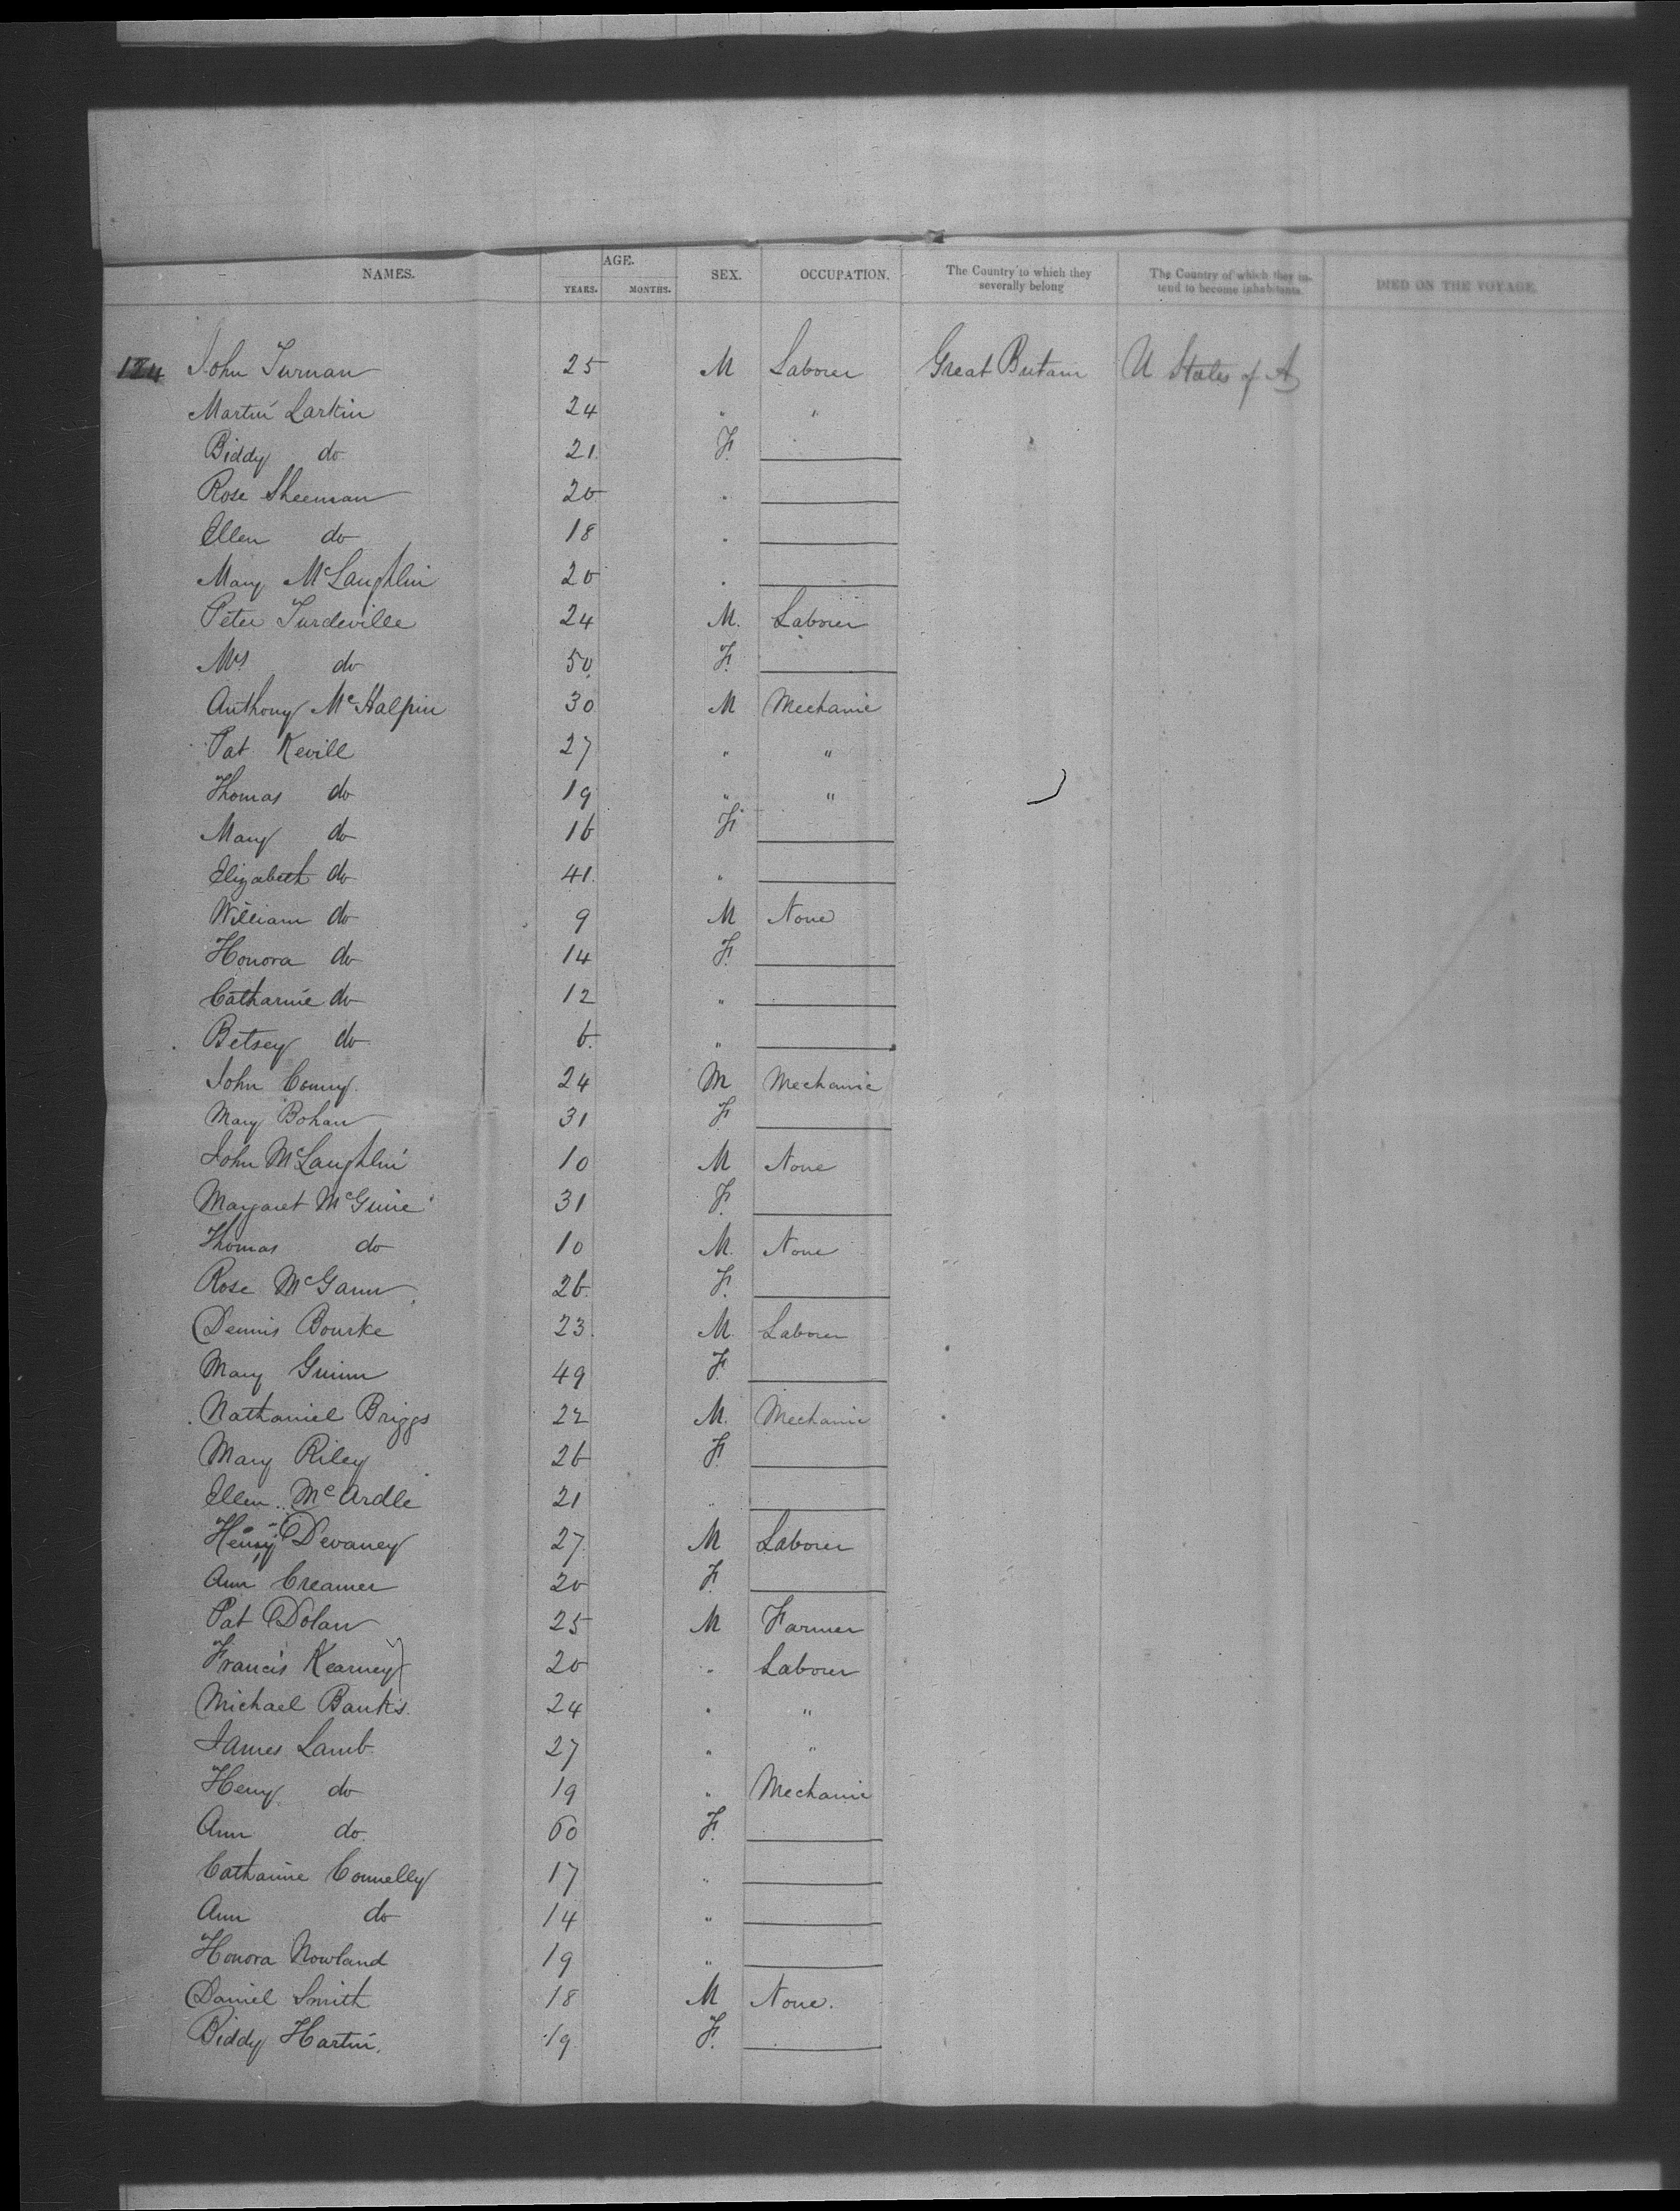 NAMES. AGE. YEARS. MONTHS. SEX. OCCUPATION. The Country to which they severally belong The Country of which they intend to become inhabitants. DIED ON THE VOYAGE.
124 John Turnan 25 M Laborer Great Britain U States of A
Martin Larkin 24 " "
Biddy do 21 F
Rose Sheeman 20 "
Ellen do 18 "
Mary McLaughlin 20 "
Peter Turdeville 24 M. Laborer
Mrs do 50 F.
Anthony McHalpin 30 M Mechanic
Pat Kevill 27 " "
Thomas do 19 " "
Mary do 16 F
Elizabeth do 41 "
William do 9 M None
Honora do 14 F.
Catharine do 12 "
Betsey do 6 "
John Conny 24 M Mechanic
Mary Bohan 31 F
John McLaughlin 10 M None
Margaret McGuire 31 F.
Thomas do 10 M. None
Rose McGann 26 F.
Dennis Bourke 23 M. Laborer
Mary Guinn 49 F
Nathaniel Briggs 22 M. Mechanic
Mary Riley 26 F.
Ellen McArdle 21 "
Henry Devaney 27 M Laborer
Ann Creamer 20 F.
Pat Dolan 25 M Farmer
Francis Kearney 20 " Laborer
Michael Banks. 24 " "
James Lamb 27 " "
Henry do 19 " Mechanic
Ann do 60 F.
Catharine Connelly 17 "
Ann do 14 "
Honora Nowland 19 "
Daniel Smith 18 M None.
Biddy Hartin. 19 F.